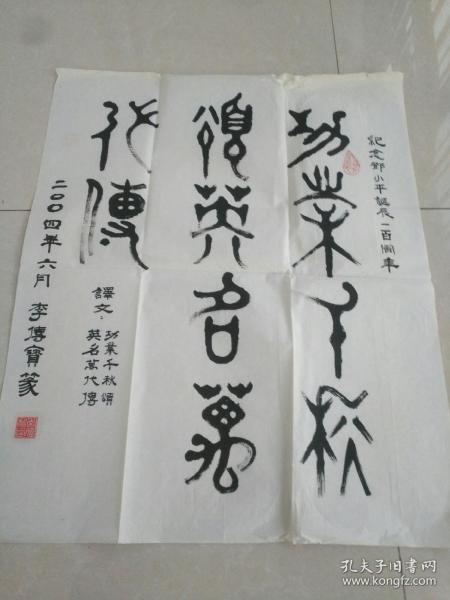 紀念鄧小平誕辰一百周年
功業千秋
頌英名萬
代傳
譯文：功業千秋頌
英名萬代傳
二〇〇四年六月李傳寶篆
孔夫子旧书网
www.kongfz.com